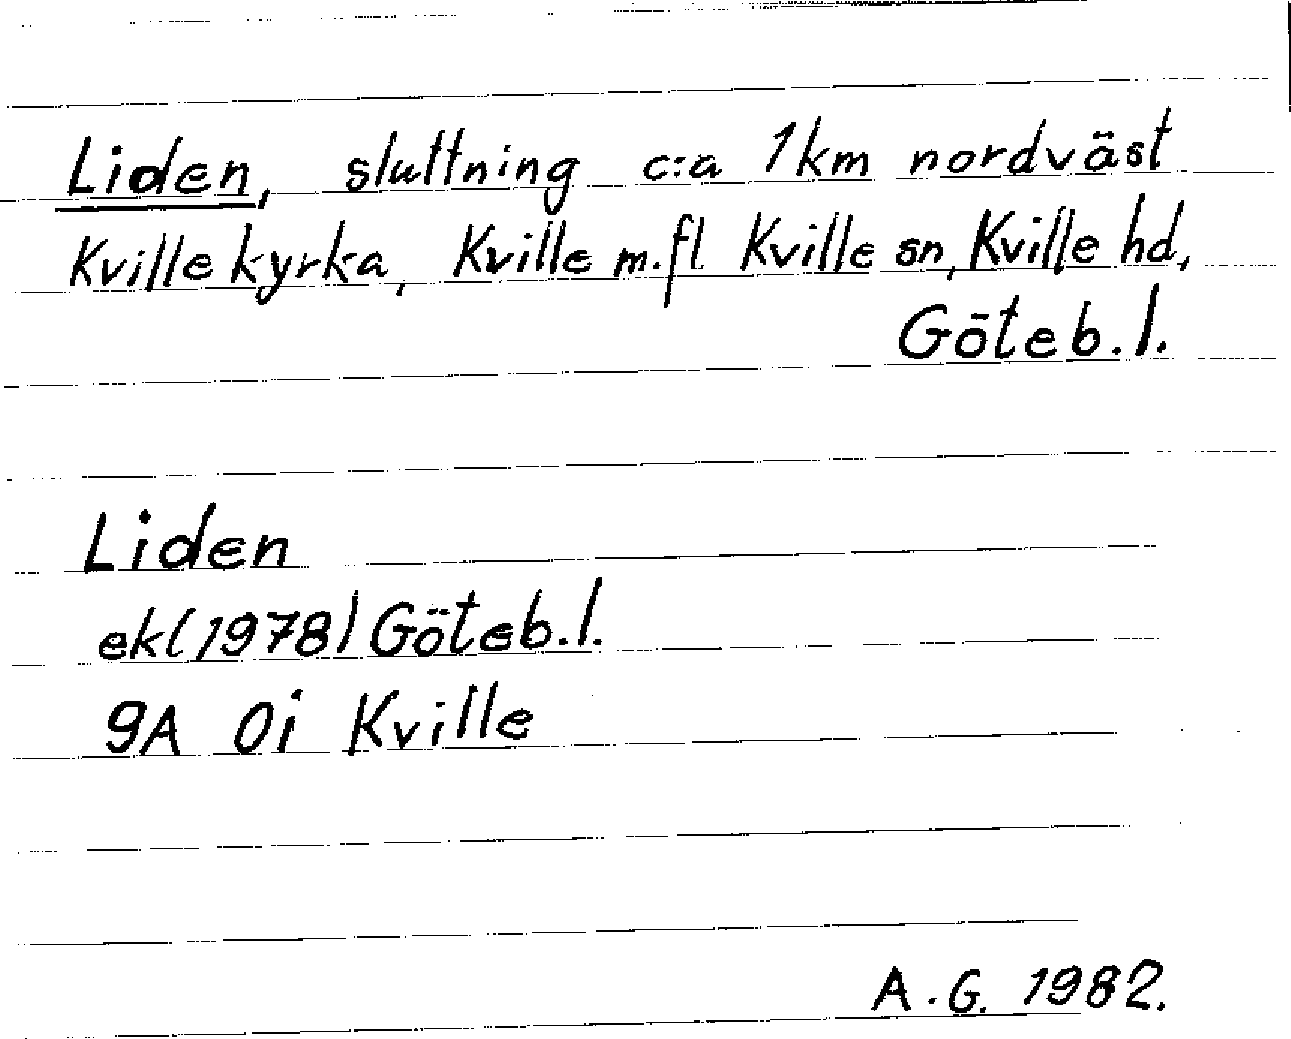 Liden, sluttning c:a 1 km nordväst
Kville kyrka, Kville m.fl. Kville sn, Kville hd,
Göteb.l.
Liden
ek(1978) Göteb.l.
9A 0i Kville
A.G. 1982.